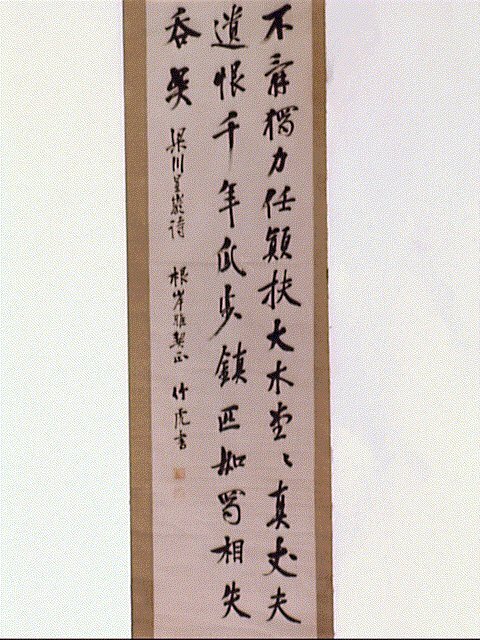 不辭獨力任顛扶大木堂々真丈夫
遺恨千年瓜步鎮匹如蜀相失
吞吳 梁川星巌詩 根岸雅契正 竹虎書